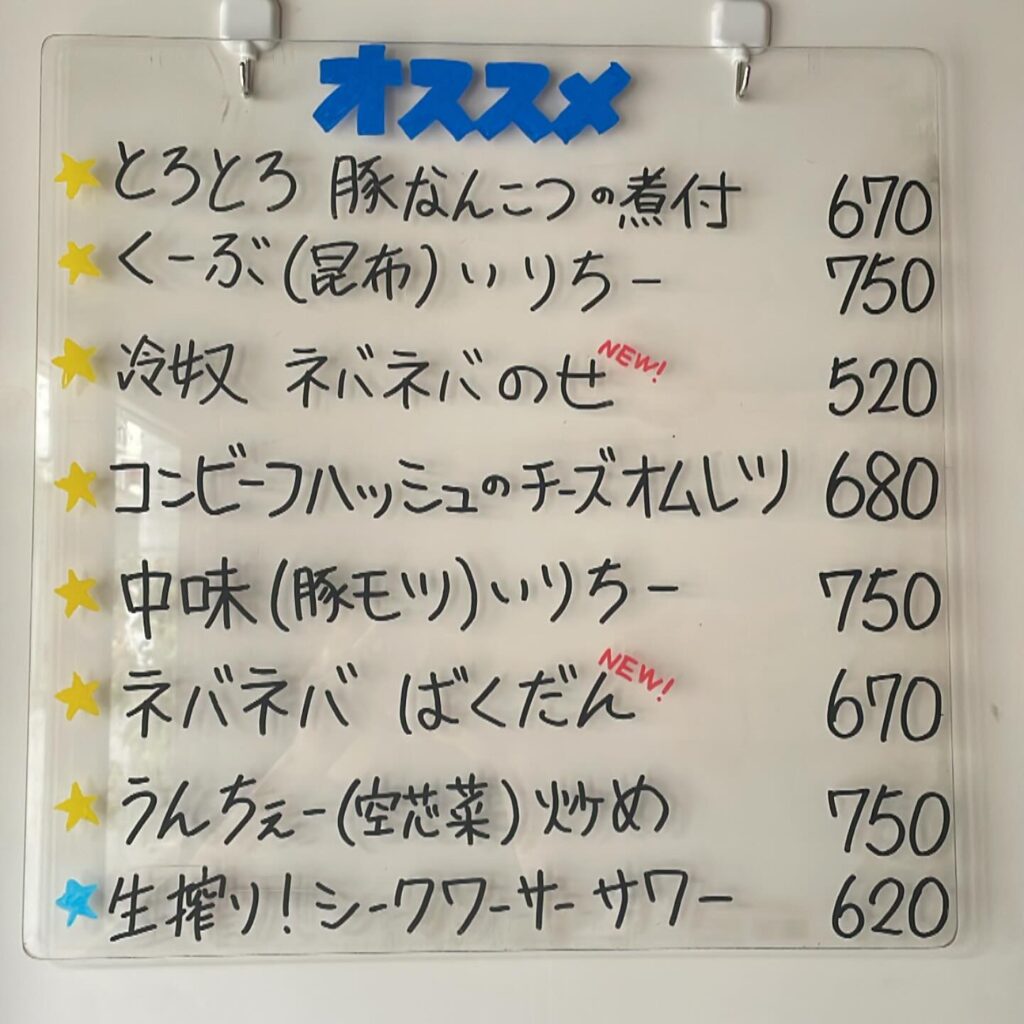 オススメ
とろとろ 豚なんこつの煮付 670
くーぶ(昆布)いりちー 750
冷奴 ネバネバのせ NEW! 520
コンビーフハッシュのチーズオムレツ 680
中味(豚モツ)いりちー 750
ネバネバ ばくだん NEW! 670
うんちぇー(空芯菜)炒め 750
生搾り!シークワーサーサワー 620